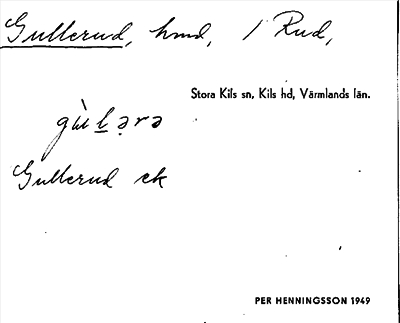 Gullerud, hmd, / Rud,
Stora Kils sn, Kils hd, Värmlands län.
gùl̲ərə
Gullerud ek
PER HENNINGSSON 1949